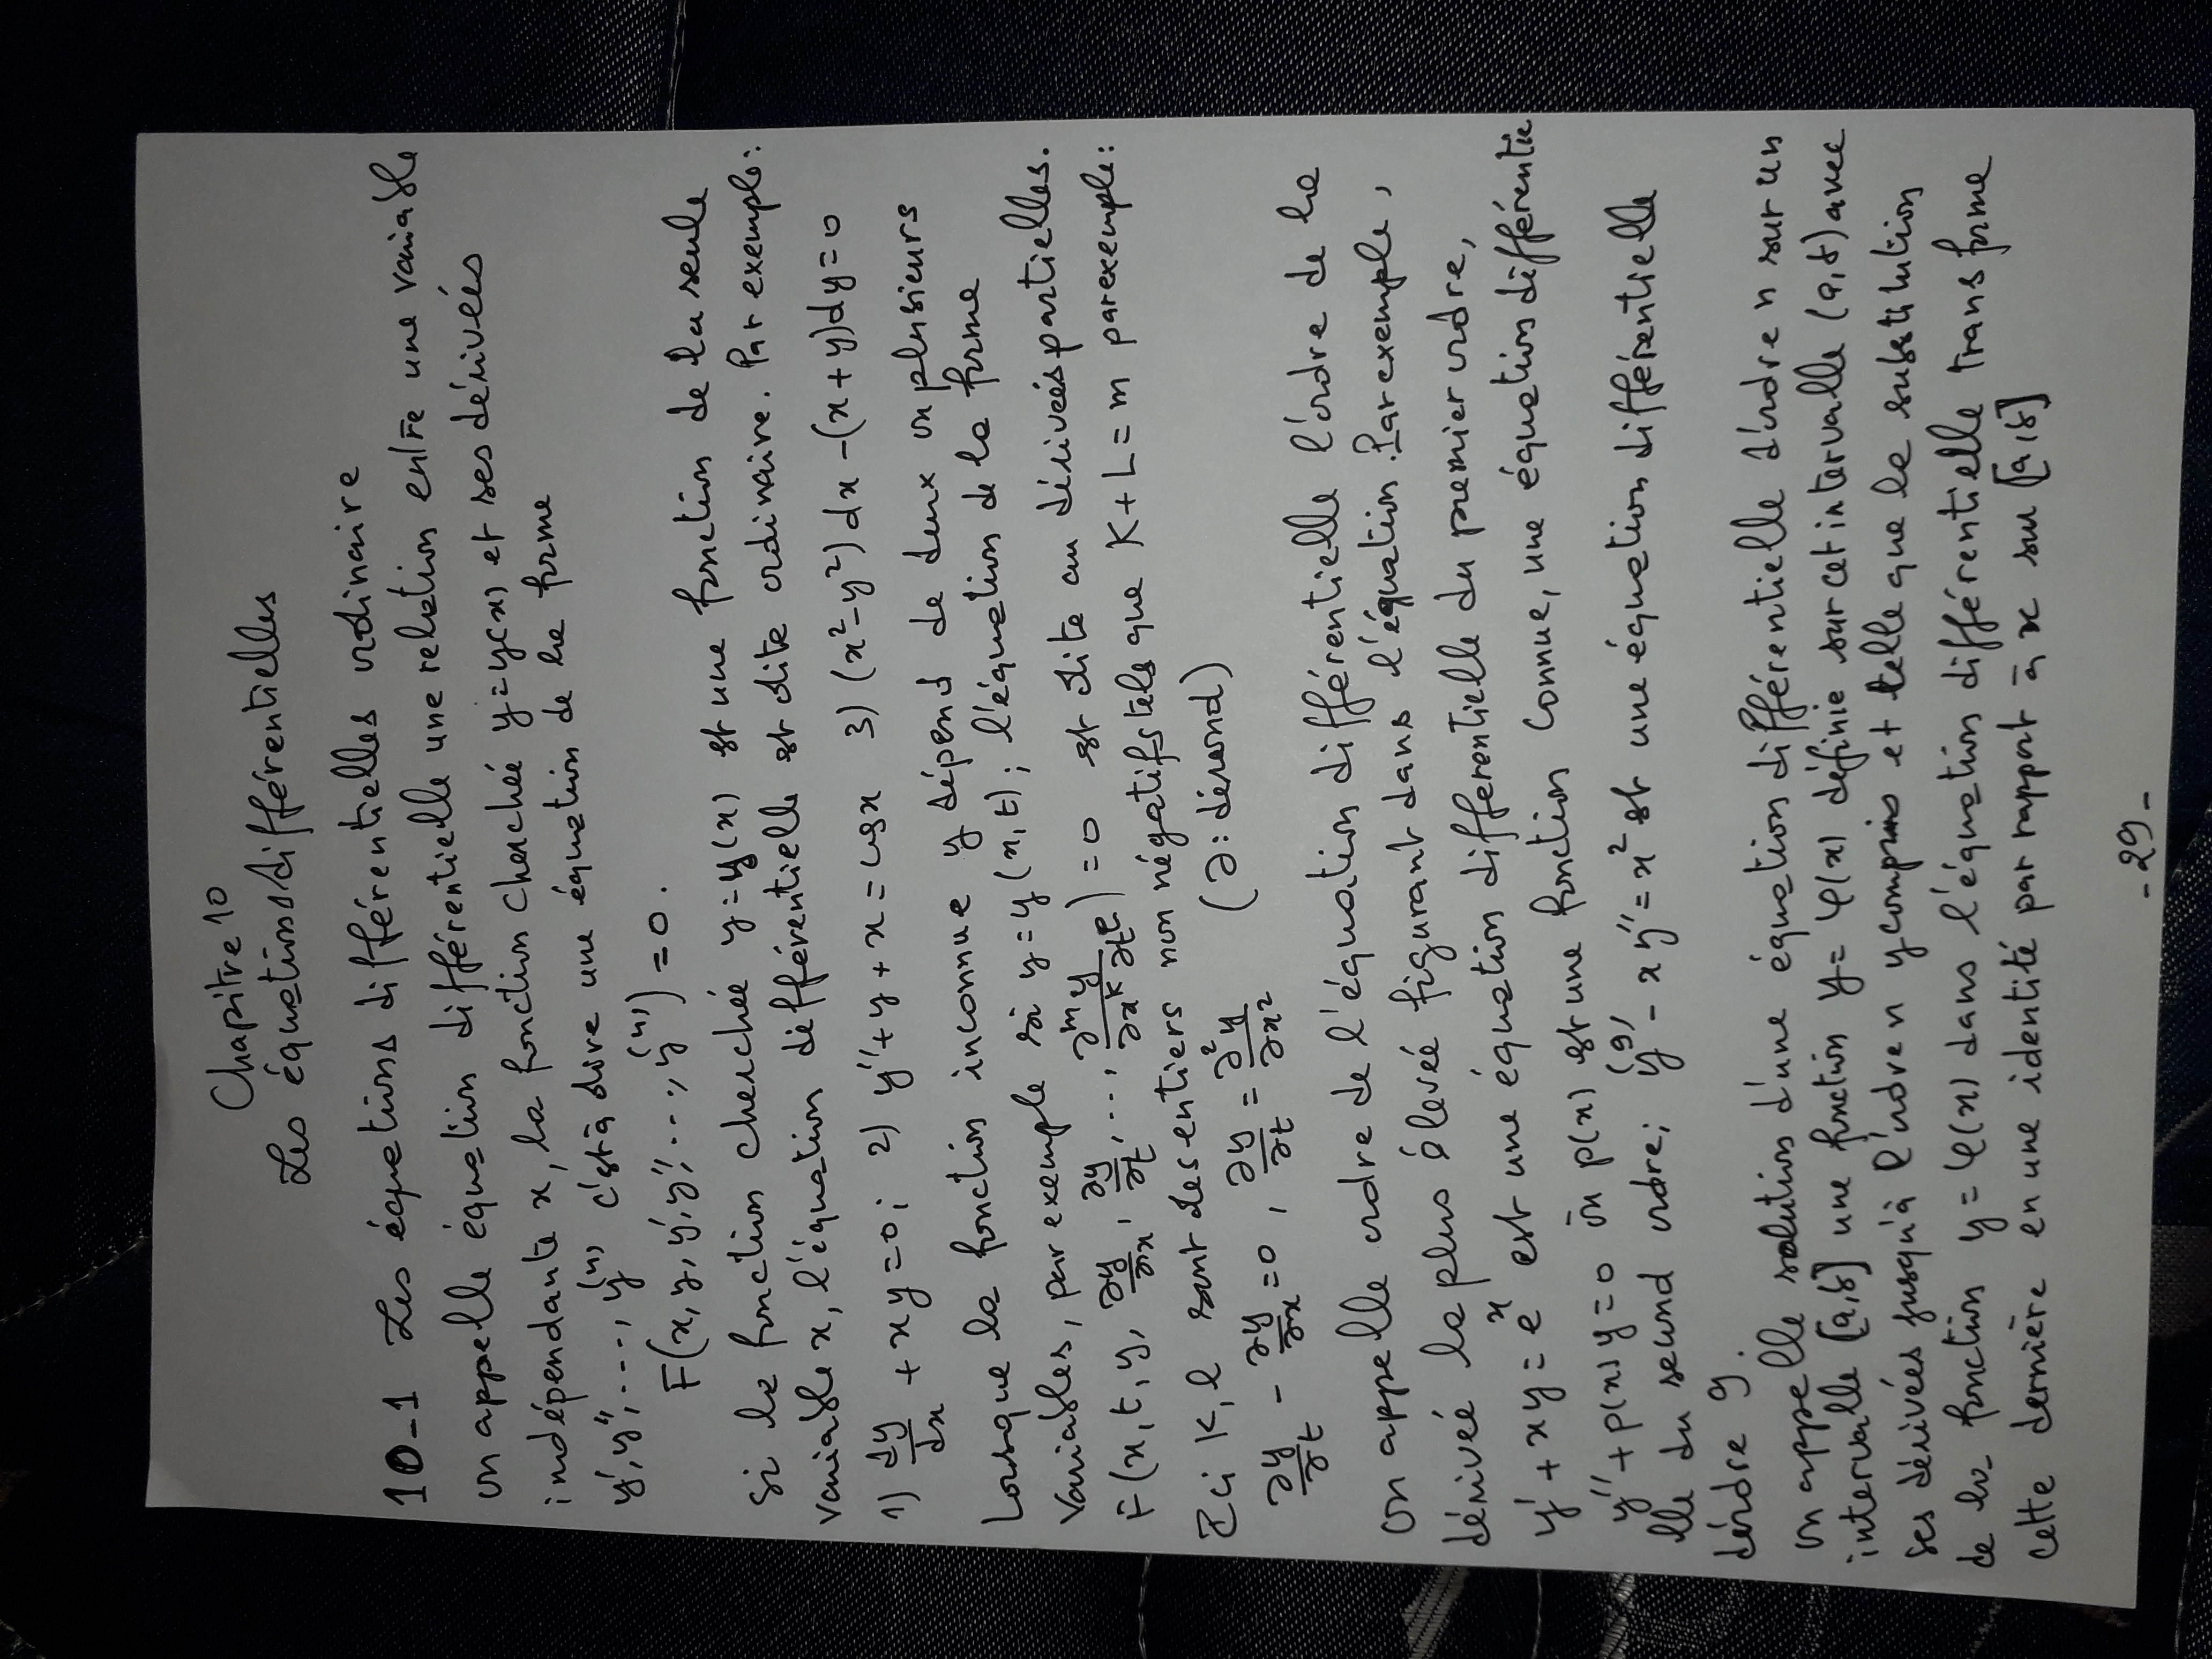 Chapitre 10
Les équations différentielles
10-1 Les équations différentielles ordinaire
on appelle équation différentielle une relation entre une variable
indépendante x, la fonction cherchée y=y(x) et ses dérivées
y', y'', ..., y⁽ⁿ⁾, c'est à dire une équation de la forme
F(x, y, y', y'', ..., y⁽ⁿ⁾) = 0.
si la fonction cherchée y=y(x) est une fonction de la seule
variable x, l'équation différentielle est dite ordinaire. Par exemple:
1) dy/dx + xy = 0; 2) y'' + y + x = cosx 3) (x²-y²)dx-(x+y)dy=0
Lorsque la fonction inconnue y dépend de deux ou plusieurs
variables, par exemple si y=y(x,t); l'équation de la forme
F(x, t, y, ∂y/∂x, ∂y/∂t, ..., ∂ᵐy/∂xᵏ∂tˡ) = 0 est dite au dérivées partielles.
Ici K, l sont des entiers non négatifs tels que K+L=m par exemple:
∂y/∂t - ∂y/∂x = 0, ∂y/∂t = ∂²y/∂x² (∂: dérond)
on appelle ordre de l'équation différentielle l'ordre de la
dérivée la plus élevée figurant dans l'équation. Par exemple,
y' + xy = eˣ est une équation différentielle du premier ordre,
y'' + p(x)y = 0 où p(x) est une fonction connue, une équation différentie
lle du second ordre; y⁽⁹⁾ - xy'' = x² est une équation différentielle
d'ordre 9.
on appelle solution d'une équation différentielle d'ordre n sur un
intervalle [a,b] une fonction y=φ(x) définie sur cet intervalle (a,b) avec
ses dérivées jusqu'à l'ordre n y compris et telle que la substitution
de la fonction y=φ(x) dans l'équation différentielle transforme
cette dernière en une identité par rapport à x sur [a,b]
-29-